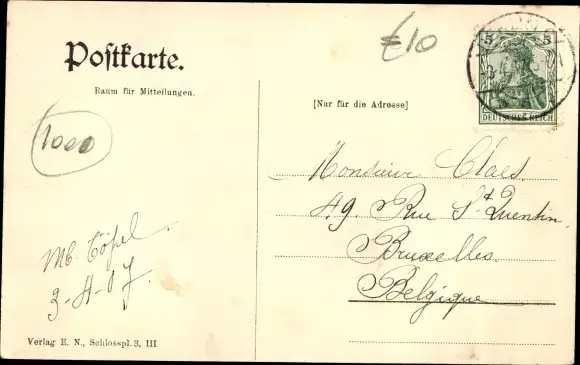 Postkarte.
Raum für Mitteilungen.
€10
1000
[Nur für die Adresse]
5 5
DEUTSCHES REICH
Monsieur Claes.
49. Rue St Quentin.
Bruxelles.
Belgique
3-4-07.
Verlag E. N., Schlosspl. 3, III